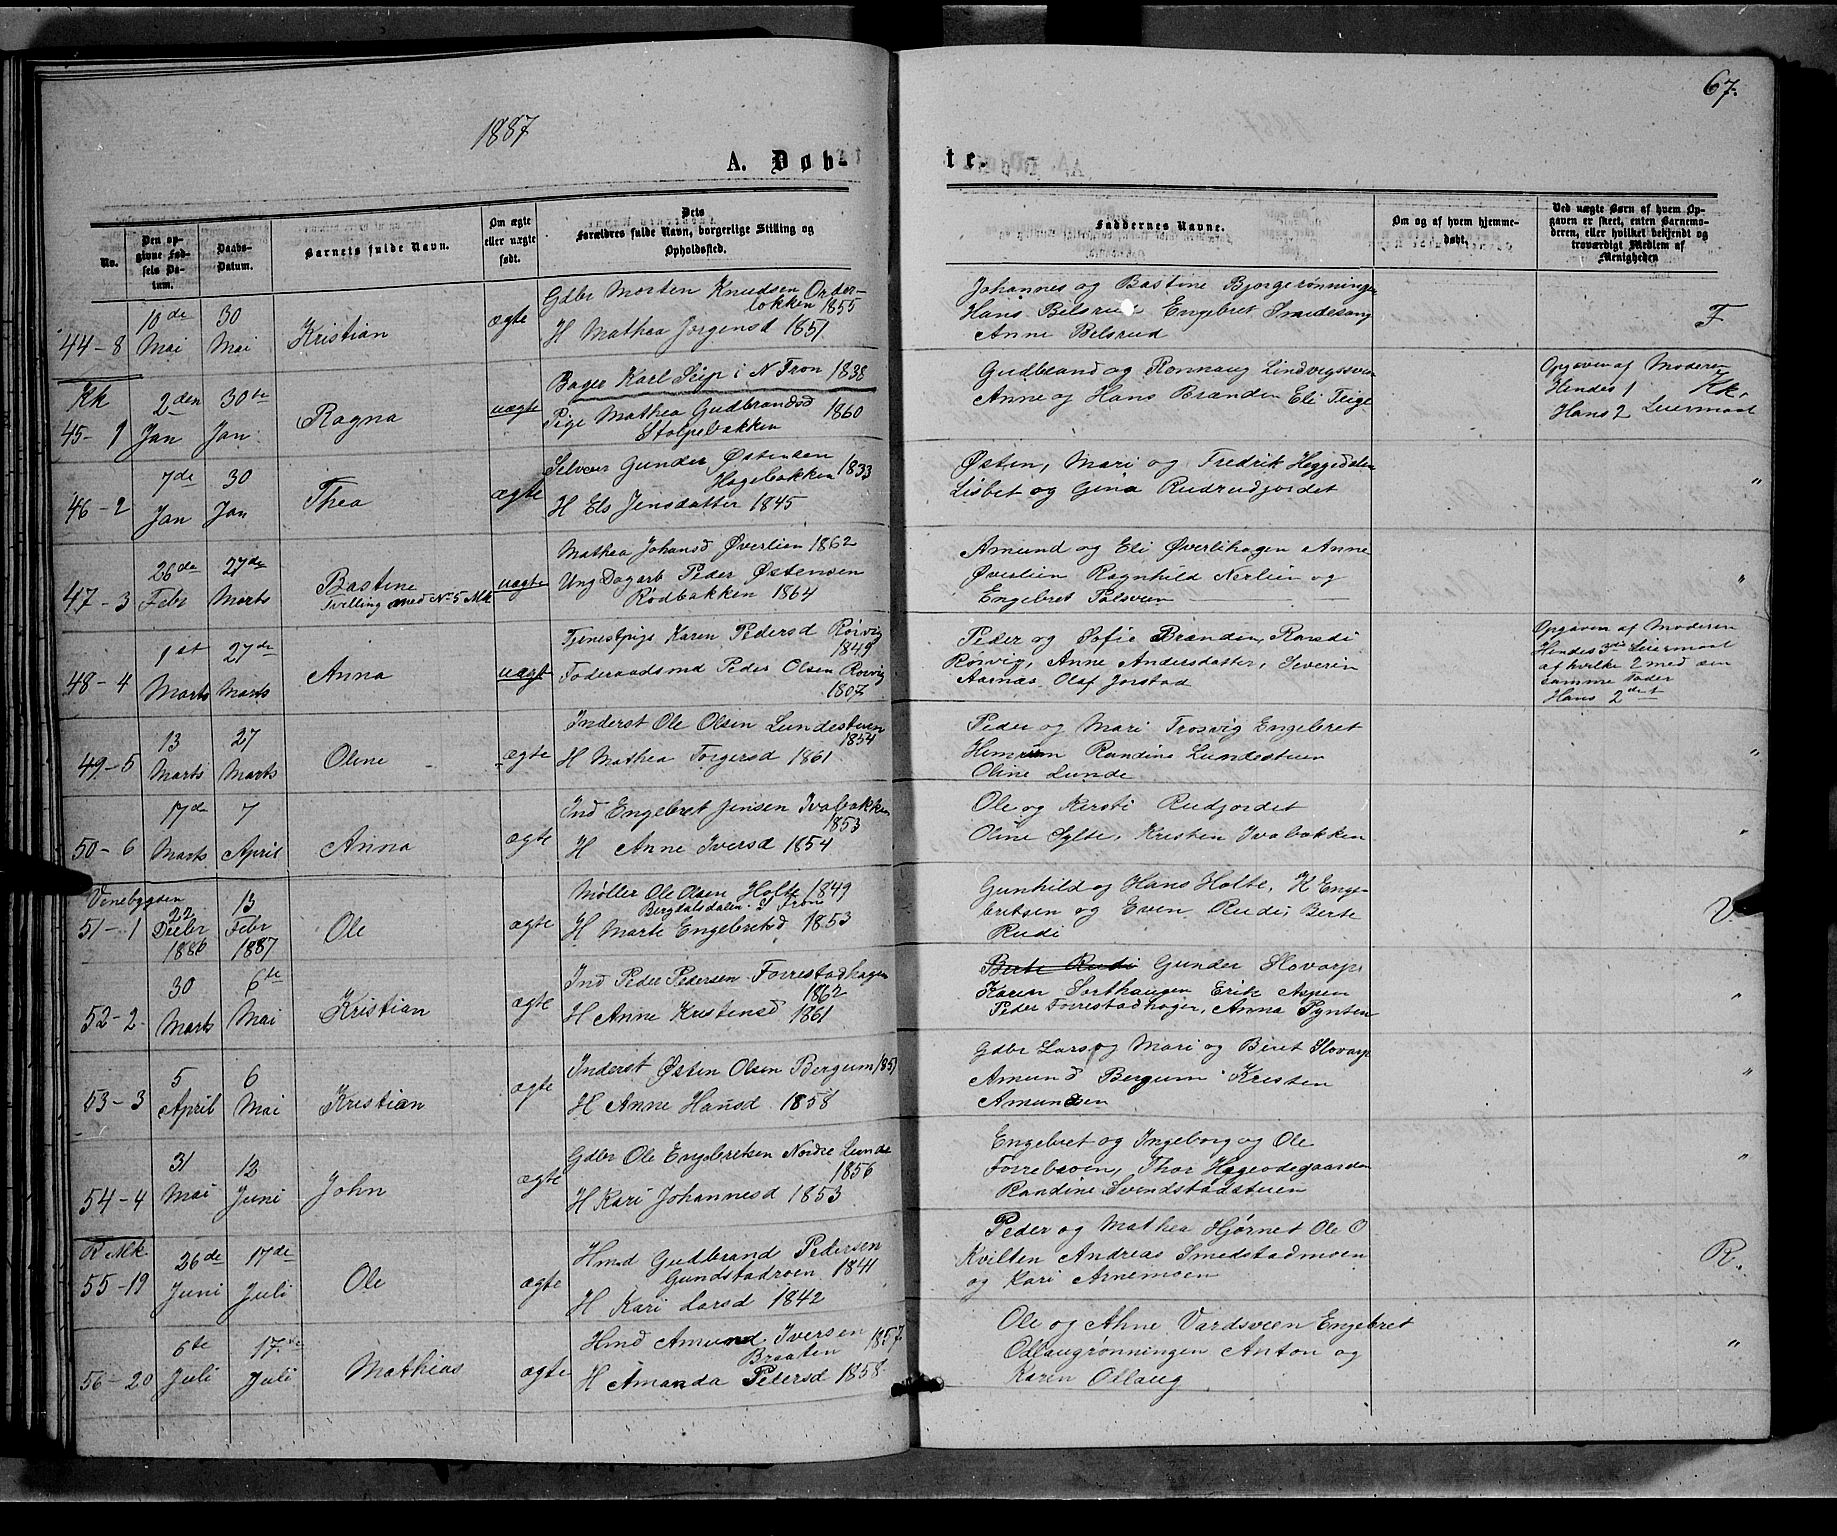 1887
67.
A. Døbte.
No.
Den opgivne Fødsels Datum.
Daabs-Datum.
Barnets fulde Navn.
Om ægte eller uægte født.
Dets Forældres fulde Navn, borgerlige Stilling og Opholdssted.
Faddernes Navne.
Om og af hvem hjemmedøbt.
Ved uægte Børn af hvem Opgaven er skeet, enten Barnemoderen, eller hvilket bekjendt og troværdigt Medlem af Menigheden
44-8
10de Mai
30 Mai
Kristian
ægte
Gdbr Morten Knudsen Onderlokken 1855
H Mathea Jørgensd 1851
Johannes og Bastine Bjørgerønningen
Hans Bilsrud Engebret Smedesang
Anne Belsrud
F.
Kk
45-1
2den Jan
30te Jan.
Ragna
uægte
Bager Karl Seip i N Fron 1838
Pige Mathea Gudbrandsd 1860
Stolpebakken
Gudbrand og Rønnaug Lindvigssven
Anne og Hans Brænden Eli Teige
Opgaven af Moderen
Hendes 1 Kk.
Hans 2 Leiermaal
46-2
7de Jan
30 Jan
Thea
ægte
Selveier Gunder Østensen
Hagebakken 1833
H Els Jensdatter 1845
Østen, Mari og Fredrik Heggedalen
Lisbet og Gina Rudrudjordet
"
47-3
26de Febr
27de Marts
Bastine
tvilling med No 5 Mk
uægte
Mathea Johansd Øverlien 1862
Ung Dagarb Peder Østensen
Rødbakken 1864
Amund og Eli Øverlihagen Anne
Øverlien Ragnhild Nerlien og
Engebret Palsveen
"
48-4
1st Marts
27de Marts
Anna
uægte
Tjenestpige Karen Pedersd Rørvig
1849
Føderaadsmd Peder Olsen Rørvig
1807
Peder og Sofie Brænden, Randi
Rørvig, Anne Andersdatter, Severin
Aarnæs Olaf Jorstad
Opgaven af Moderen
Hendes 3die Leiermaal
af hvilke 2 med den
samme Fader
Hans 2det
49-5
13 Marts
27 Marts
Oline
ægte
Inderst Ole Olsen Lundestuen
1854
H Mathea Torgersd 1861
Peder og Mari Trosvig Engebret
Randine Lundestuen
Oline Lunde
"
50-6
17de Marts
7 April
Anna
ægte
Ind Engebret Jensen Ivabakken
1853
H Anne Iversd 1854
Ole og Kersti Rudjordet
Oline Sylte, Kristen Ivabakken
"
Venebygden
51-1
22 Decbr 1886
13 Febr 1887
Ole
ægte
Møller Ole Olsen Holte 1849
Bergdalsdalen. S Fron
H Marte Engebretsd 1853
Gunhild og Hans Holte, K Engebritsen og Even Rudi; Berte
Rudi
V.
52-2
30 Marts
6te Mai
Kristian
ægte
Ind Peder Pedersen Forrestadhagen
1862
H Anne Kristensd 1861
Berte Rudi Gunder Hovarp
Karen Sorthaugen Erik Aspen
Peder Forrestadhagen, Anna Pynten
"
53-3
5 April
6 Mai
Kristian
ægte
Inderst Østen Olsen Bergum 1851
H Anne Hansd 1858
Gdbr Lars og Mari og Beret Hovarp
Amund Bergum Kristen
Amundsen
"
54-4
31 Mai
12 Juni
John
ægte
Gdbr Ole Engebretsen Nordre Lunde
1856
H Kari Johannesd 1853
Engebret og Ingeborg og Ole
Forrebøen, Thor Hageodegaarden
Randine Svendstadstuen
"
R Mk
55-19
26de Juni
17de Juli
Ole
ægte
Hmd Gudbrand Pedersen
Gundstadroen 1841
H Kari Larsd 1842
Peder og Mathea Hjørnet Ole O
Kvilten Andreas Smedstadmoen
og Kari Arnemoen
R.
56-20
6te Juli
17.de Juli
Mathias
ægte
Hmd Amund Iversen 1857
Braaten
H Amanda Petersd 1858
Ole og Ahne Vardsveen Engebret
Odlaugrønningen Anton og
Karen Ollaug
"